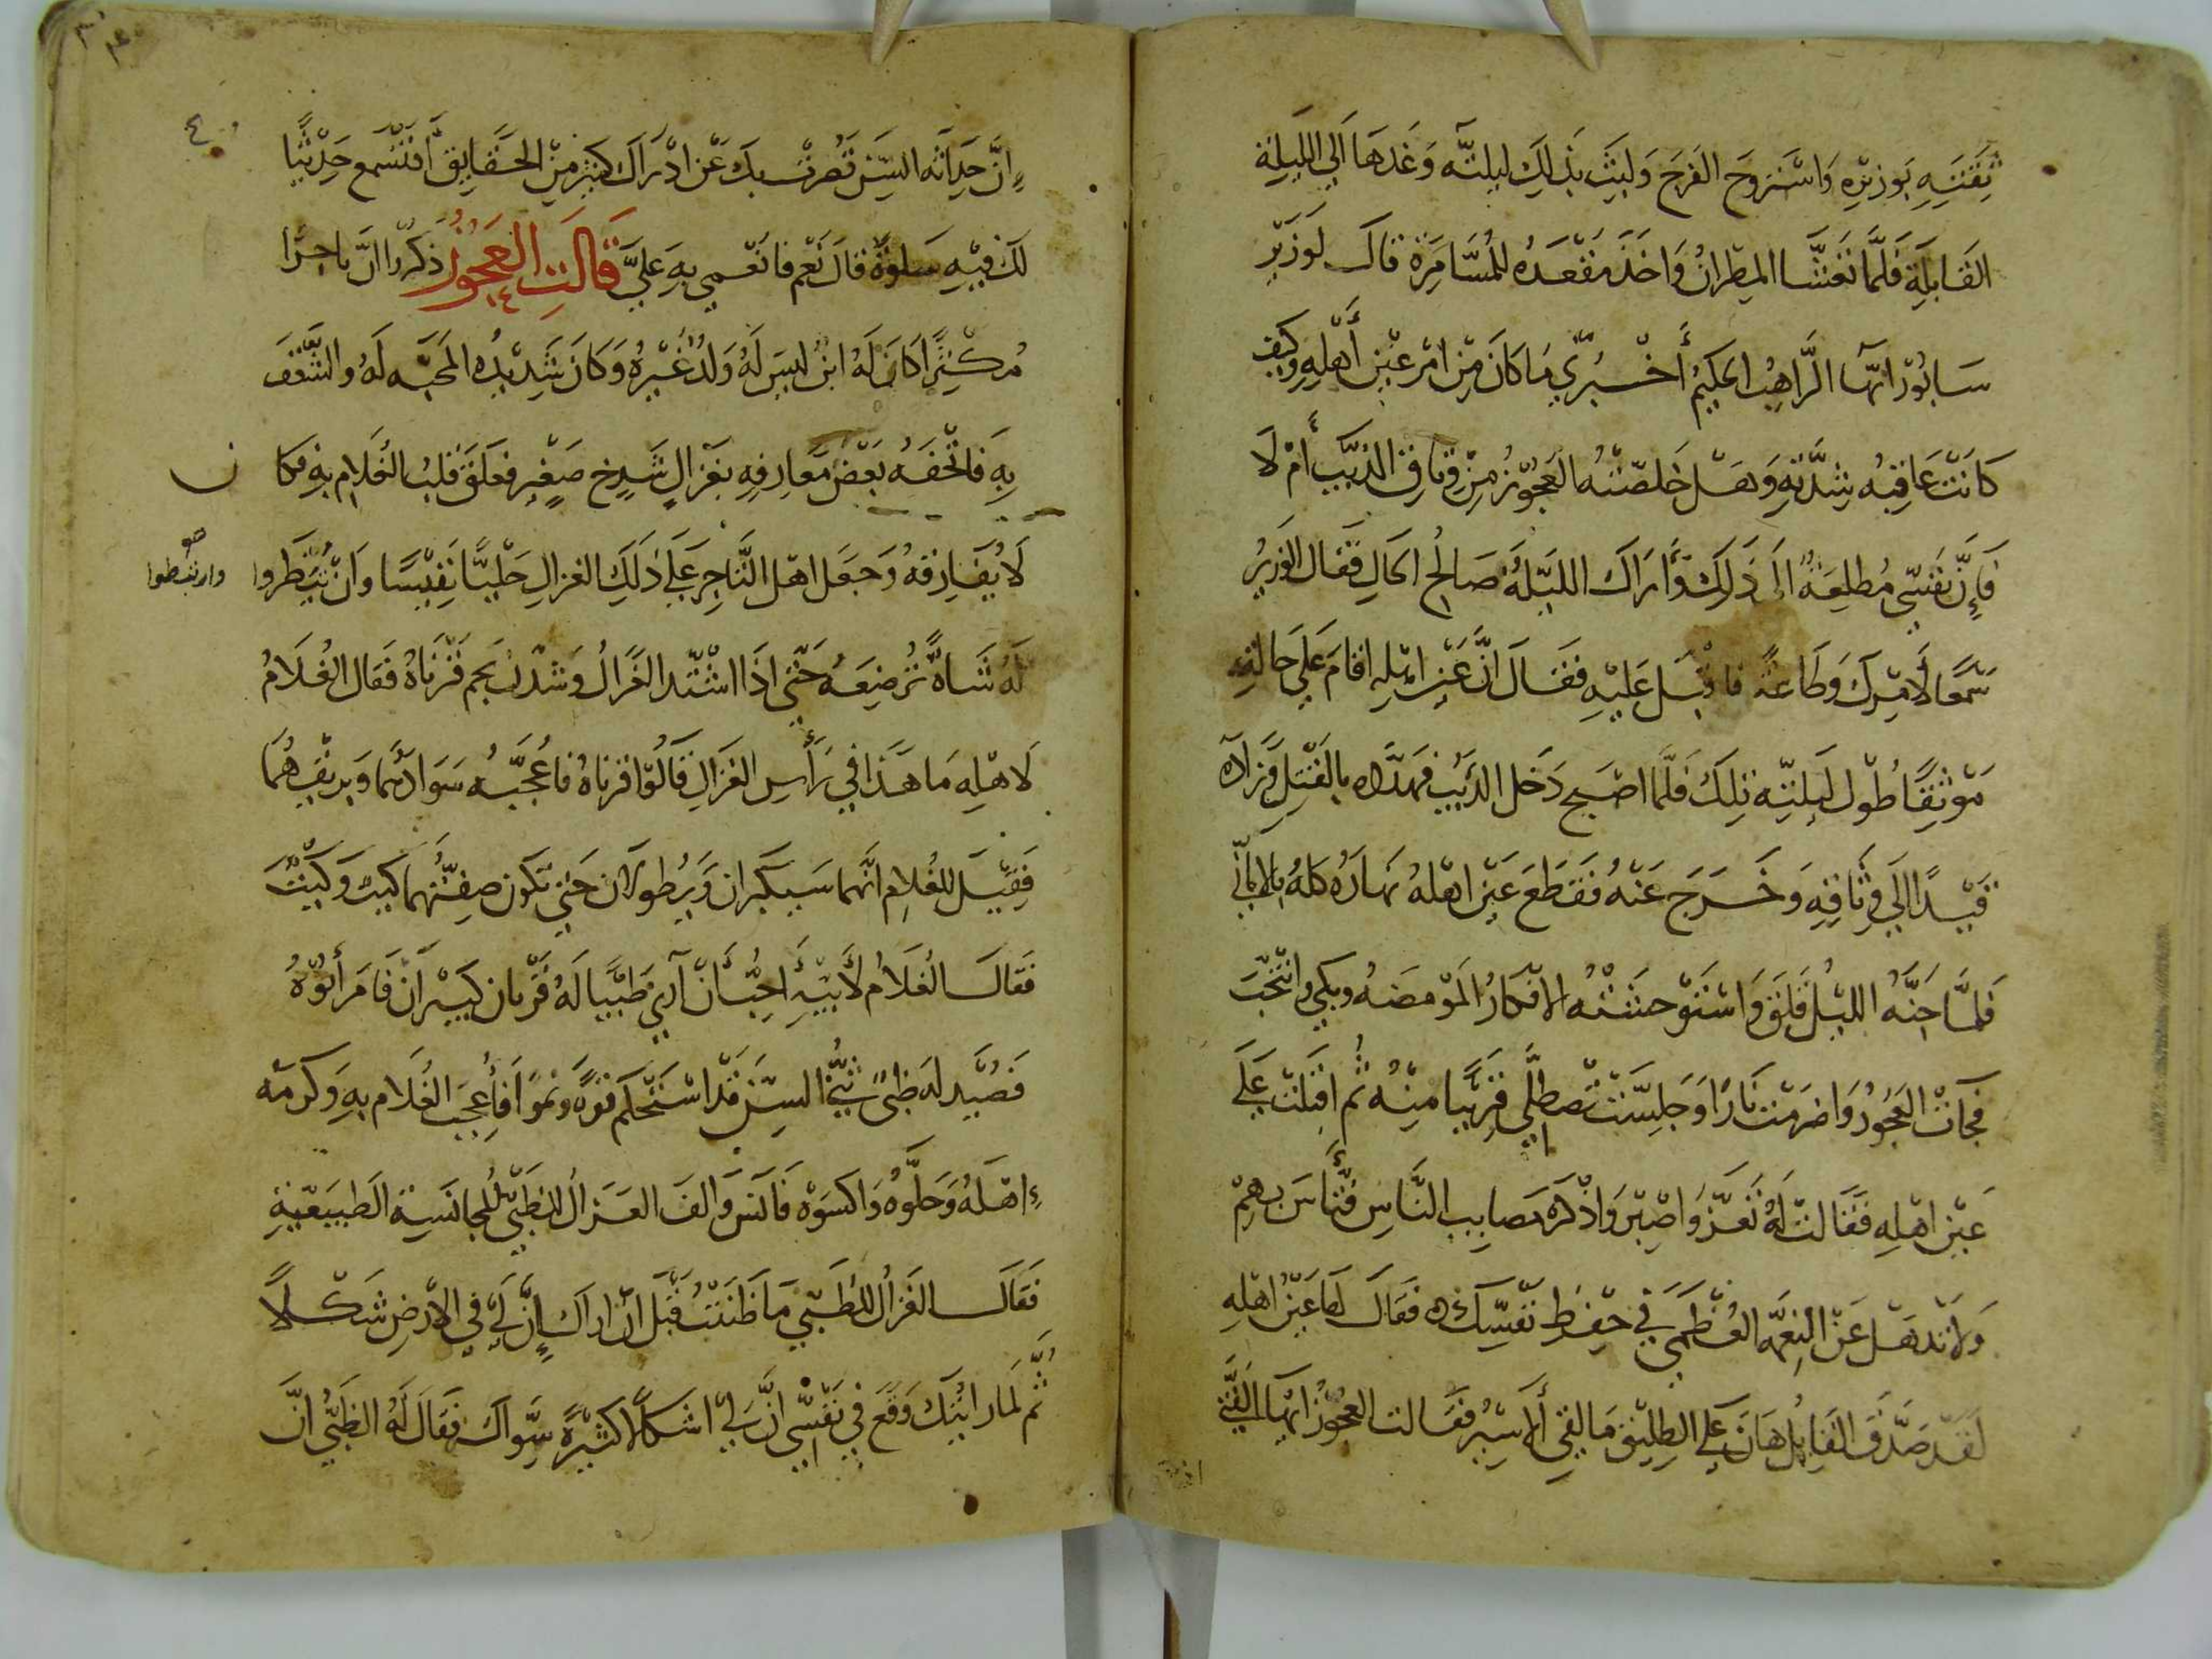 ثقته بوزيره واستروح الفرج ولبث بذلك ليلته وغدها الي الليلة
القابلة فلما تغشا المطران واخذ مقعده للمسامرة قال لوزير
سابور ايها الراهب الحكيم أخبرني ما كان من امر عين أهله وكيف
كانت عاقبه شدته وهل خلصته العجوز من وثاق الذيب أم لا
فإن نفسي مطلعة الى ذلك وأراك الليلة صالح الحال فقال الوزير
سمعا لأمرك وطاعة فاقبل عليه فقال ان عين اهله اقام على حالته
موثقا طول ليلته تلك فلما اصبح دخل الذيب فهدده بالقتل فزاده
قيدا الي وثاقه وخرج عنه فقطع عين اهله نهاره كله بالاماني
فلما جنه الليل قلق واستوحشته الافكار المومضه وبكي وانتحب
فجات العجوز واضرمت نارا وجلست تصطلي قريبا منه ثم اقبلت علي
عين اهله فقالت له تعز واصبر واذكر مصايب الناس فتأس بهم
ولا تذهل عن النعمه العظمي في حفظ نفسك فقال لها عين اهله
لقد صدق القايل هان علي الطليق ما لقي ألاسير فقالت العجوز ايها الفتي
٤٠
ان حداثه السن قصرت بك عن ادراك كثير من الحقايق أفتسمع حديثا
لك فيه سلوة قال نعم فانعمي به علي قالت العجوز ذكروا ان تاجرا
مكثرا كان له ابن ليس له ولد غيره وكان شديد المحبه له والشغف
به فاتحفه بعض معارفه بغزال شدخ صغير فعلق قلب الغلام به فكا ن
لا يفارقه وجعل اهل التاجر على ذلك الغزال حليا نفيسا وان تبطروا
وارتبطوا
له شاة ترضعه حتى اذا اشتد الغزال وشدن نجم قرناه فقال الغلام
لاهله ما هذا في رأس الغزال قالوا قرناه فاعجبه سوادهما وبريقهما
فقيل للغلام انهما سيكبران ويطولان حتي تكون صفتهما كيت وكيت
فقال الغلام لأبيه أحب أن آري ظبيا له قرنان كبيران فامر أبوه
فصيد له ظبي ثني السن قد استحكم قوة ونموا فأعجب الغلام به وكرمه
اهله وحلوه واكسوه فانس والف الغزال للظبي للمجانسية الطبيعية
فقال الغزال للظبي ما ظننت قبل ان اراك إن لي في الارض شكلا
ثم لما رايتك وقع في نفسي ان لي اشكالا كثيرة سواك فقال له الظبي ان